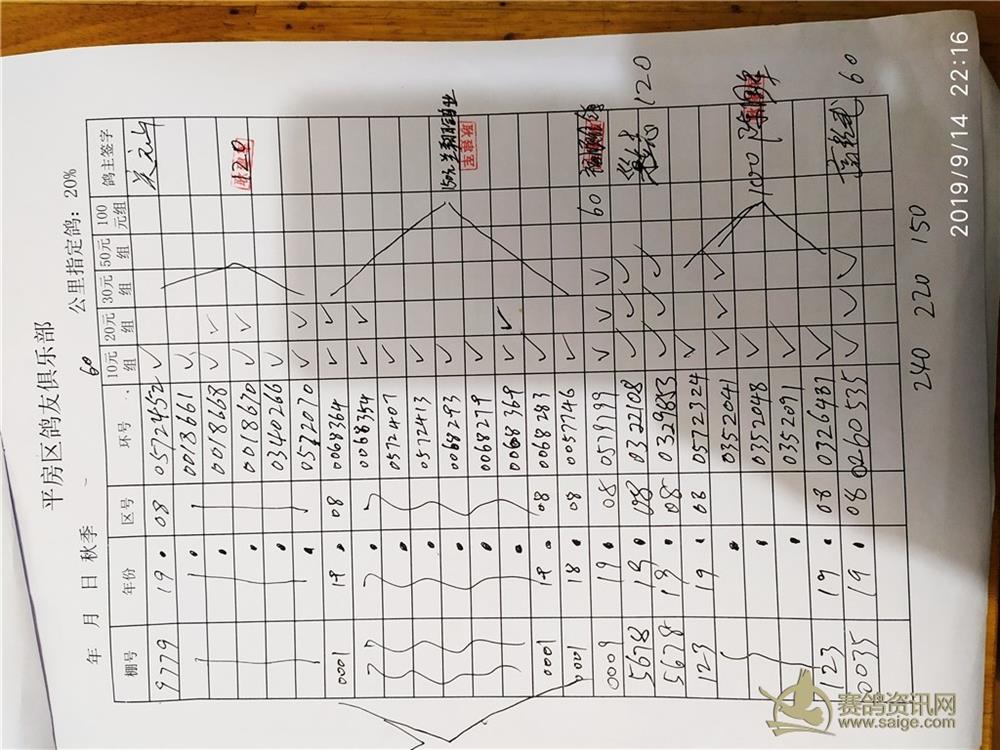 平房区鸽友俱乐部
年 月 日 秋季 60 公里指定鸽：20%
棚号 年份 区号 环号 10元组 20元组 30元组 50元组 100元组 鸽主签字
9779 19 08 0572452 ✓
0018661 ✓
0018668 ✓ ✓
0018670 ✓ ✓
0340266 ✓
0572070 ✓ ✓
0001 19 08 0068364 ✓ ✓
0068354 ✓ ✓
0572407 ✓
0572413 ✓
0068293 ✓
0068279 ✓
0068369 ✓ ✓
0001 19 08 0068283 ✓
0001 18 08 0057746 ✓
0009 19 08 0579799 ✓ ✓ ✓ 60
5678 19 08 0322108 ✓ ✓ ✓
5678 19 08 0329853 ✓ ✓ ✓ 120
123 19 08 0572324 ✓
0352041 ✓ ✓ ✓
0352048 ✓ 100
0352091 ✓
123 19 08 0326487 ✓ ✓
0035 19 08 0260535 ✓ ✓ ✓ 60
240 220 150
2019/9/14 22:16
赛鸽资讯网
www.saige.com